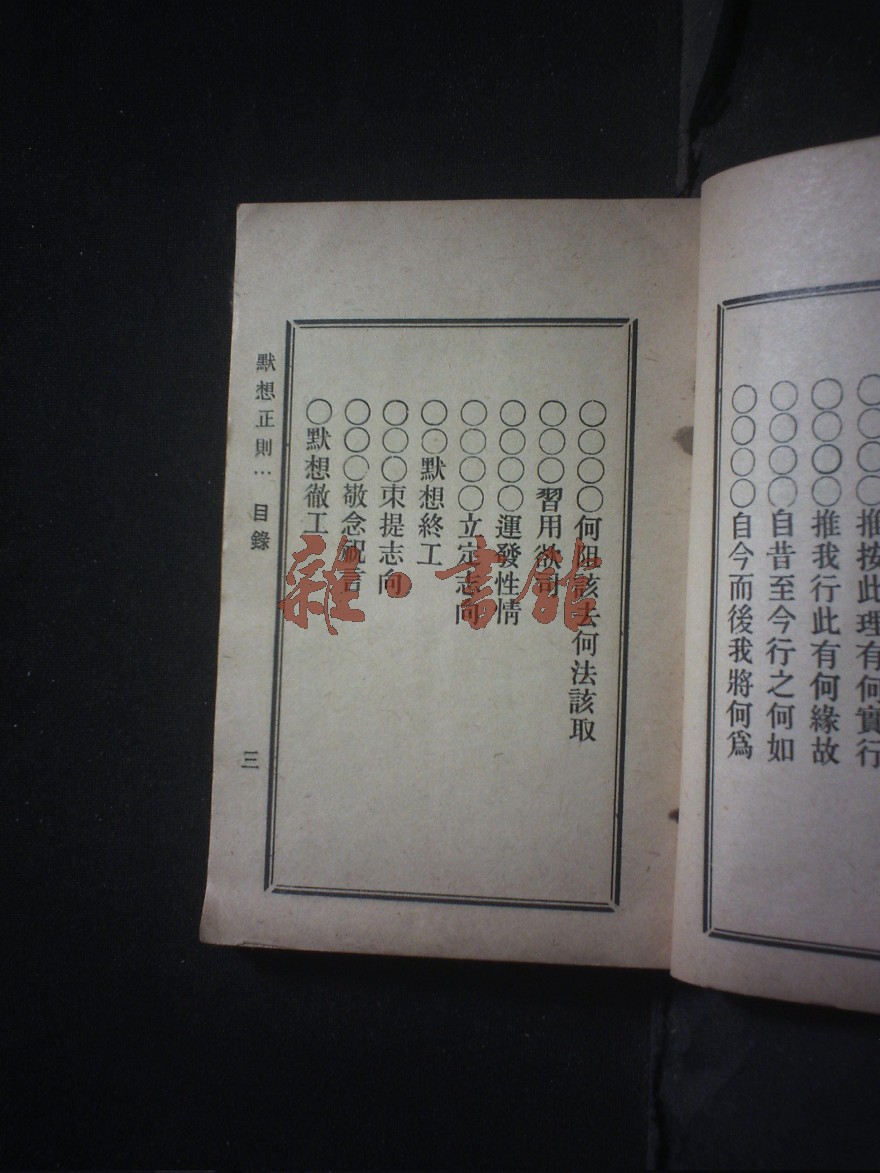 ○○○○推按此理有何實行
○○○○推我行此有何緣故
○○○○自昔至今行之何如
○○○○自今而後我將何爲
○○○○何阻該去何法該取
○○○習用欲司
○○○○運發性情
○○○○立定志向
○○默想終工
○○○束提志向
○○○敬念祝言
○默想徹工
默想正則⋯ 目錄
三
雜·書館